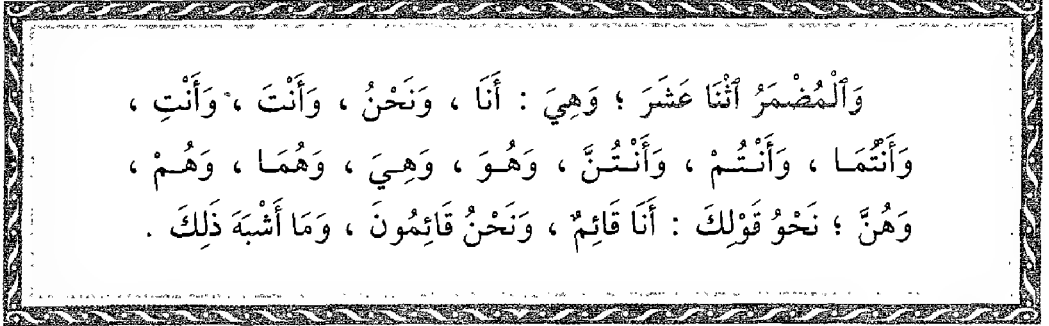 وَٱلْمُضْمَرُ ٱثْنَا عَشَرَ ؛ وَهِيَ : أَنَا ، وَنَحْنُ ، وَأَنْتَ ، وَأَنْتِ ،
وَأَنْتُمَا ، وَأَنْتُمْ ، وَأَنْتُنَّ ، وَهُوَ ، وَهِيَ ، وَهُمَا ، وَهُمْ ،
وَهُنَّ ؛ نَحْوُ قَوْلِكَ : أَنَا قَائِمٌ ، وَنَحْنُ قَائِمُونَ ، وَمَا أَشْبَهَ ذَلِكَ .